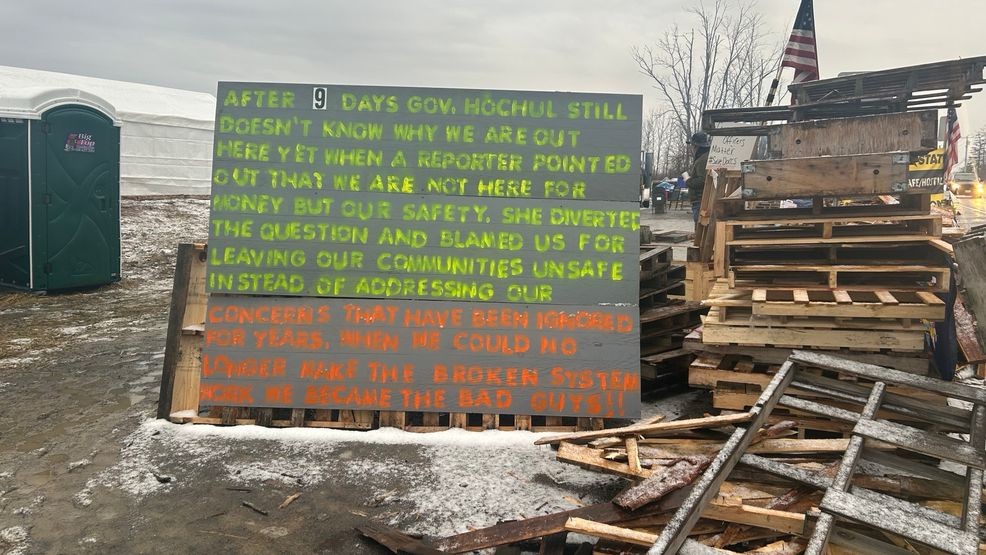 AFTER 9 DAYS GOV. HOCHUL STILL
DOESN'T KNOW WHY WE ARE OUT
HERE YET WHEN A REPORTER POINTED
OUT THAT WE ARE NOT HERE FOR
MONEY BUT OUR SAFETY. SHE DIVERTED
THE QUESTION AND BLAMED US FOR
LEAVING OUR COMMUNITIES UNSAFE
INSTEAD OF ADDRESSING OUR
CONCERNS THAT HAVE BEEN IGNORED
FOR YEARS. WHEN WE COULD NO
LONGER MAKE THE BROKEN SYSTEM
WORK WE BECAME THE BAD GUYS!!
Big
Top
Officers
Matter
STAT
AFE/HOSTIL